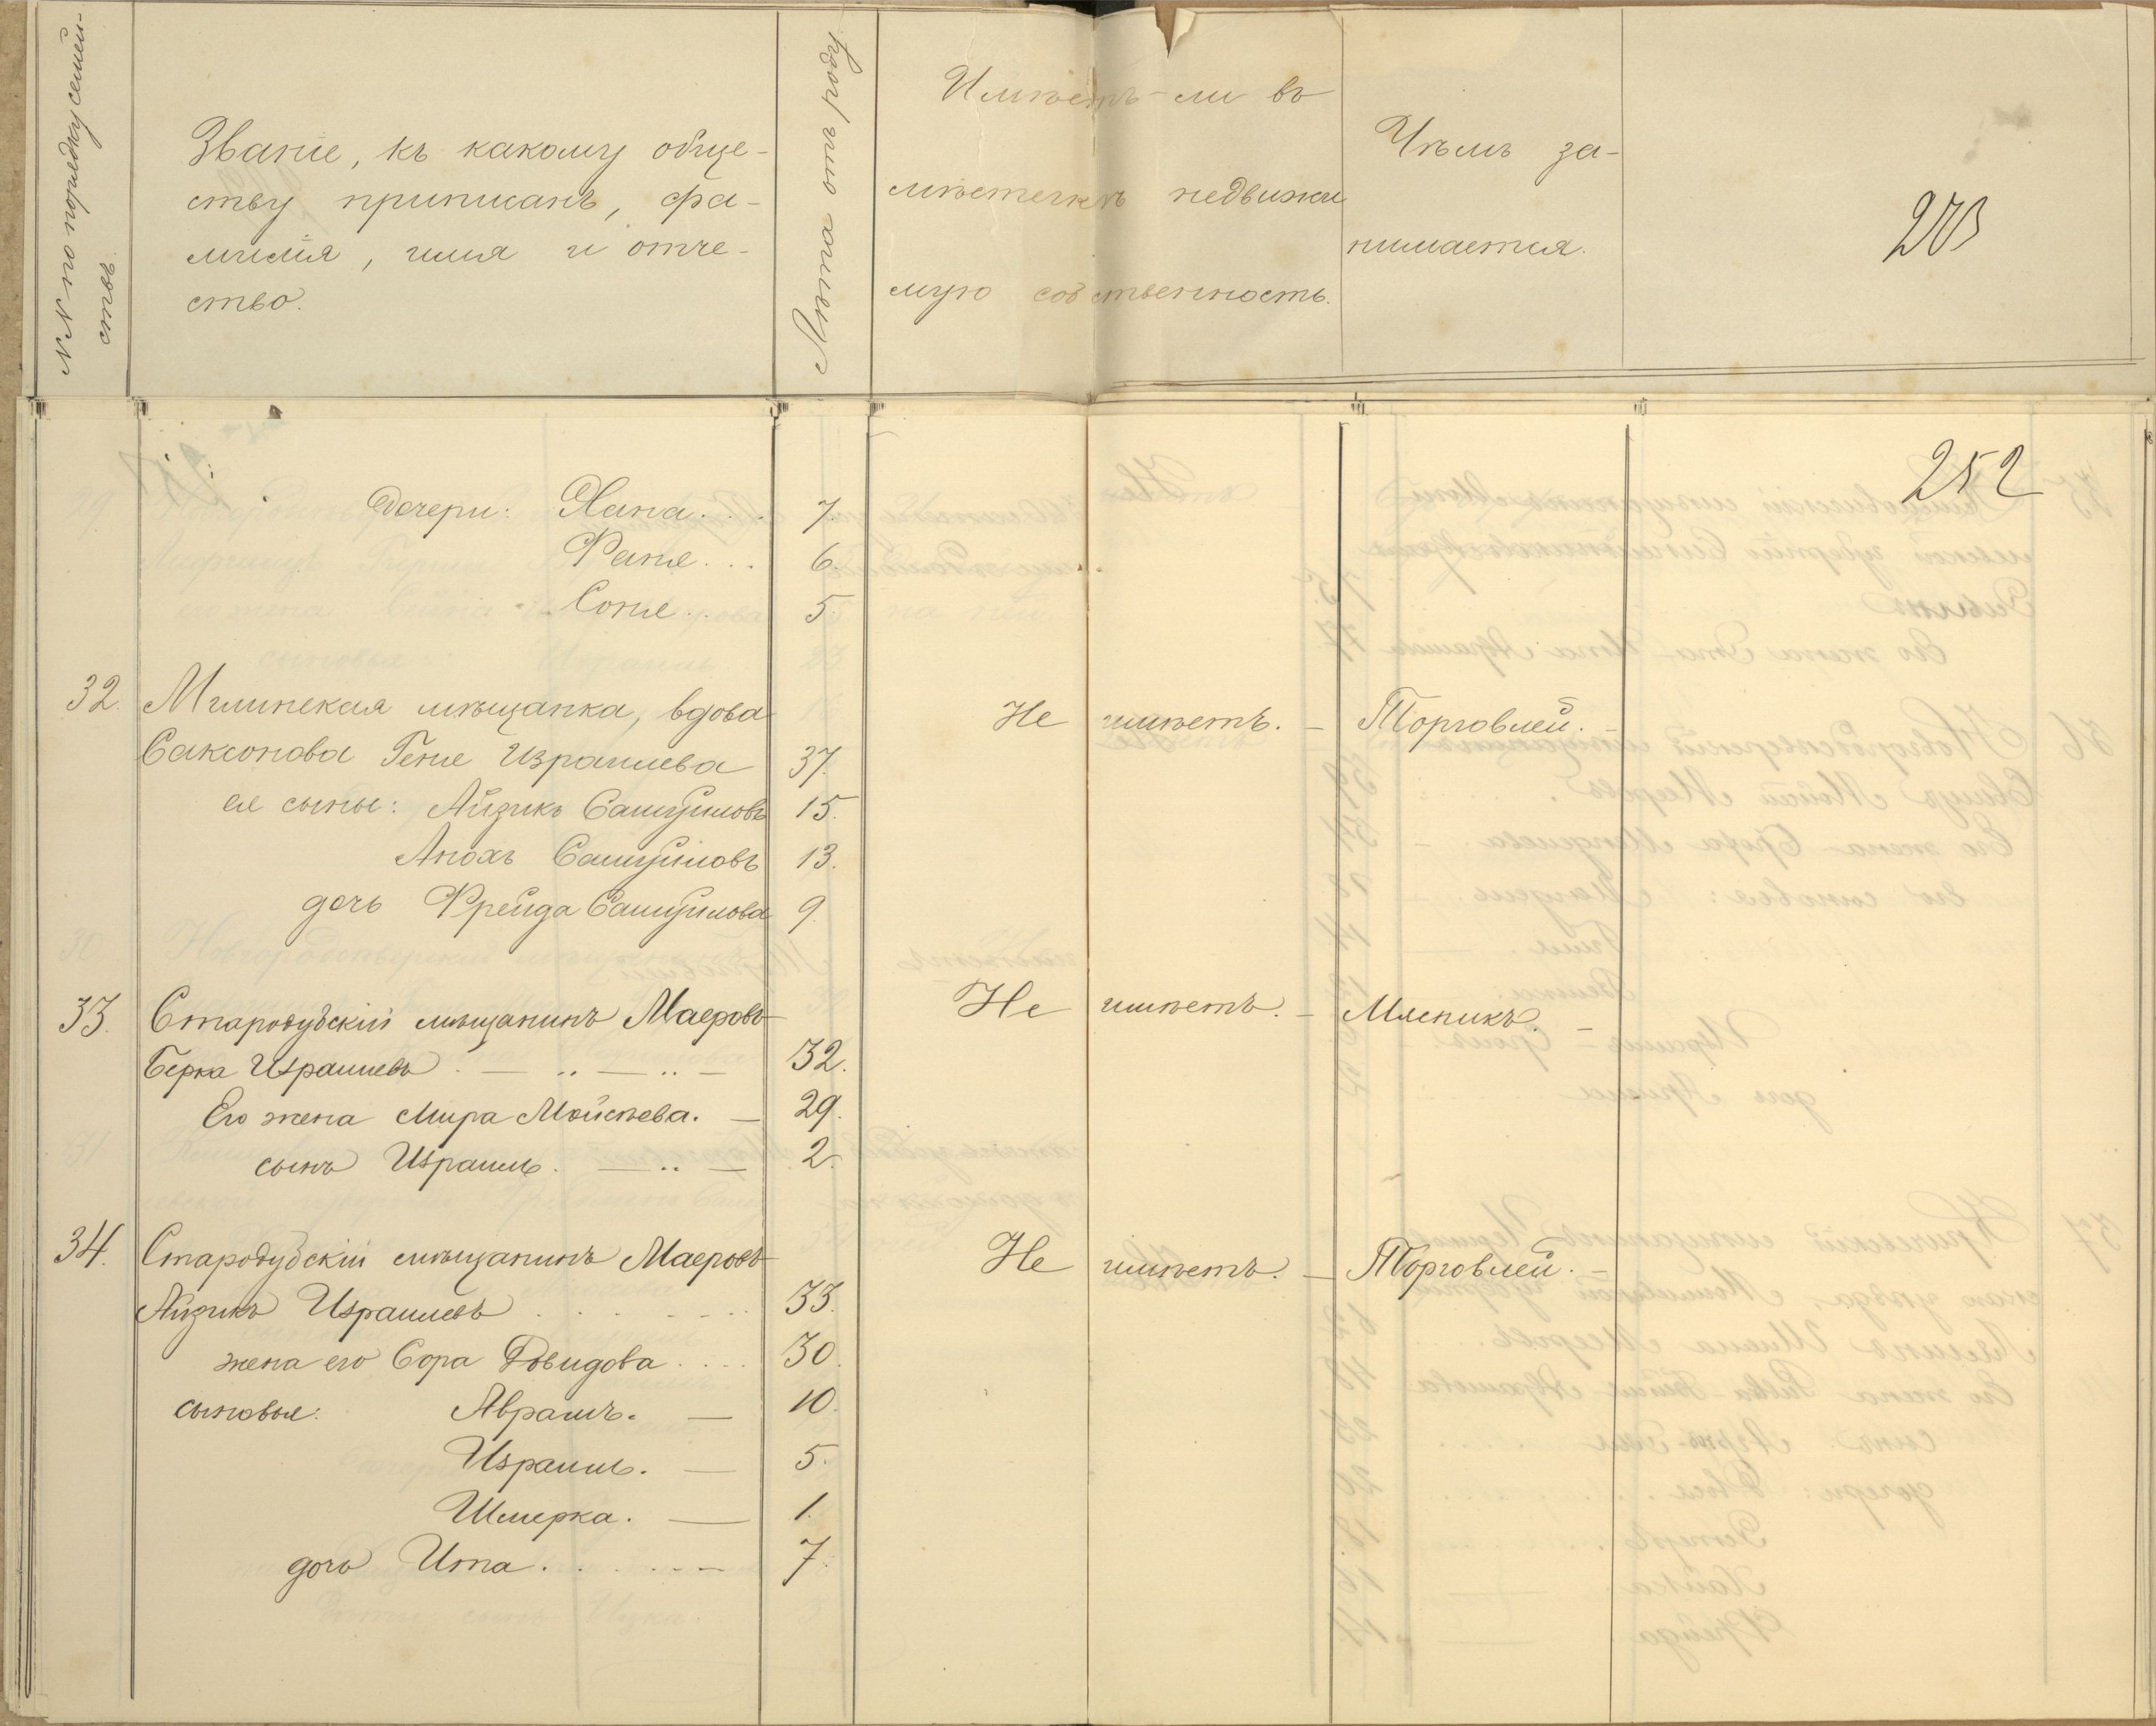 №№ по порядку семей-
ствъ.
Званіе, къ какому обще-
ству приписанъ, фа-
милія, имя и отче-
ство.
Лѣта отъ роду
Имѣетъ-ли въ
мѣстечкѣ недвижи
мую собственность.
Чѣмъ за-
нимается.
203
252
дочери: Хана... 7.
Фаня... 6.
Соня.. 5.
32. Мглинская мѣщанка, вдова Не имѣетъ. – Торговлей. –
Саксонова Геня Израилева 37.
ея сыны: Айзикъ Самуиловъ 15.
Анохъ Самуиловъ 13.
дочь Фрейда Самуилова 9.
33. Стародубскій мѣщанинъ Маеровъ Не имѣетъ. – Мясникъ. –
Берка Израилевъ . — .. — .. — 32.
Его жена Мира Мойсѣева. — 29.
сынъ Израиль. — .. — 2.
34. Стародубскій мѣщанинъ Маеровъ Не имѣетъ. – Торговлей. –
Айзикъ Израилевъ . . . . . . 33.
жена его Сора Довидова .... 30.
сыновья: Аврамъ. — 10.
Израиль. — 5.
Шмерка. — 1.
дочь Ита. . . . . . . 7.